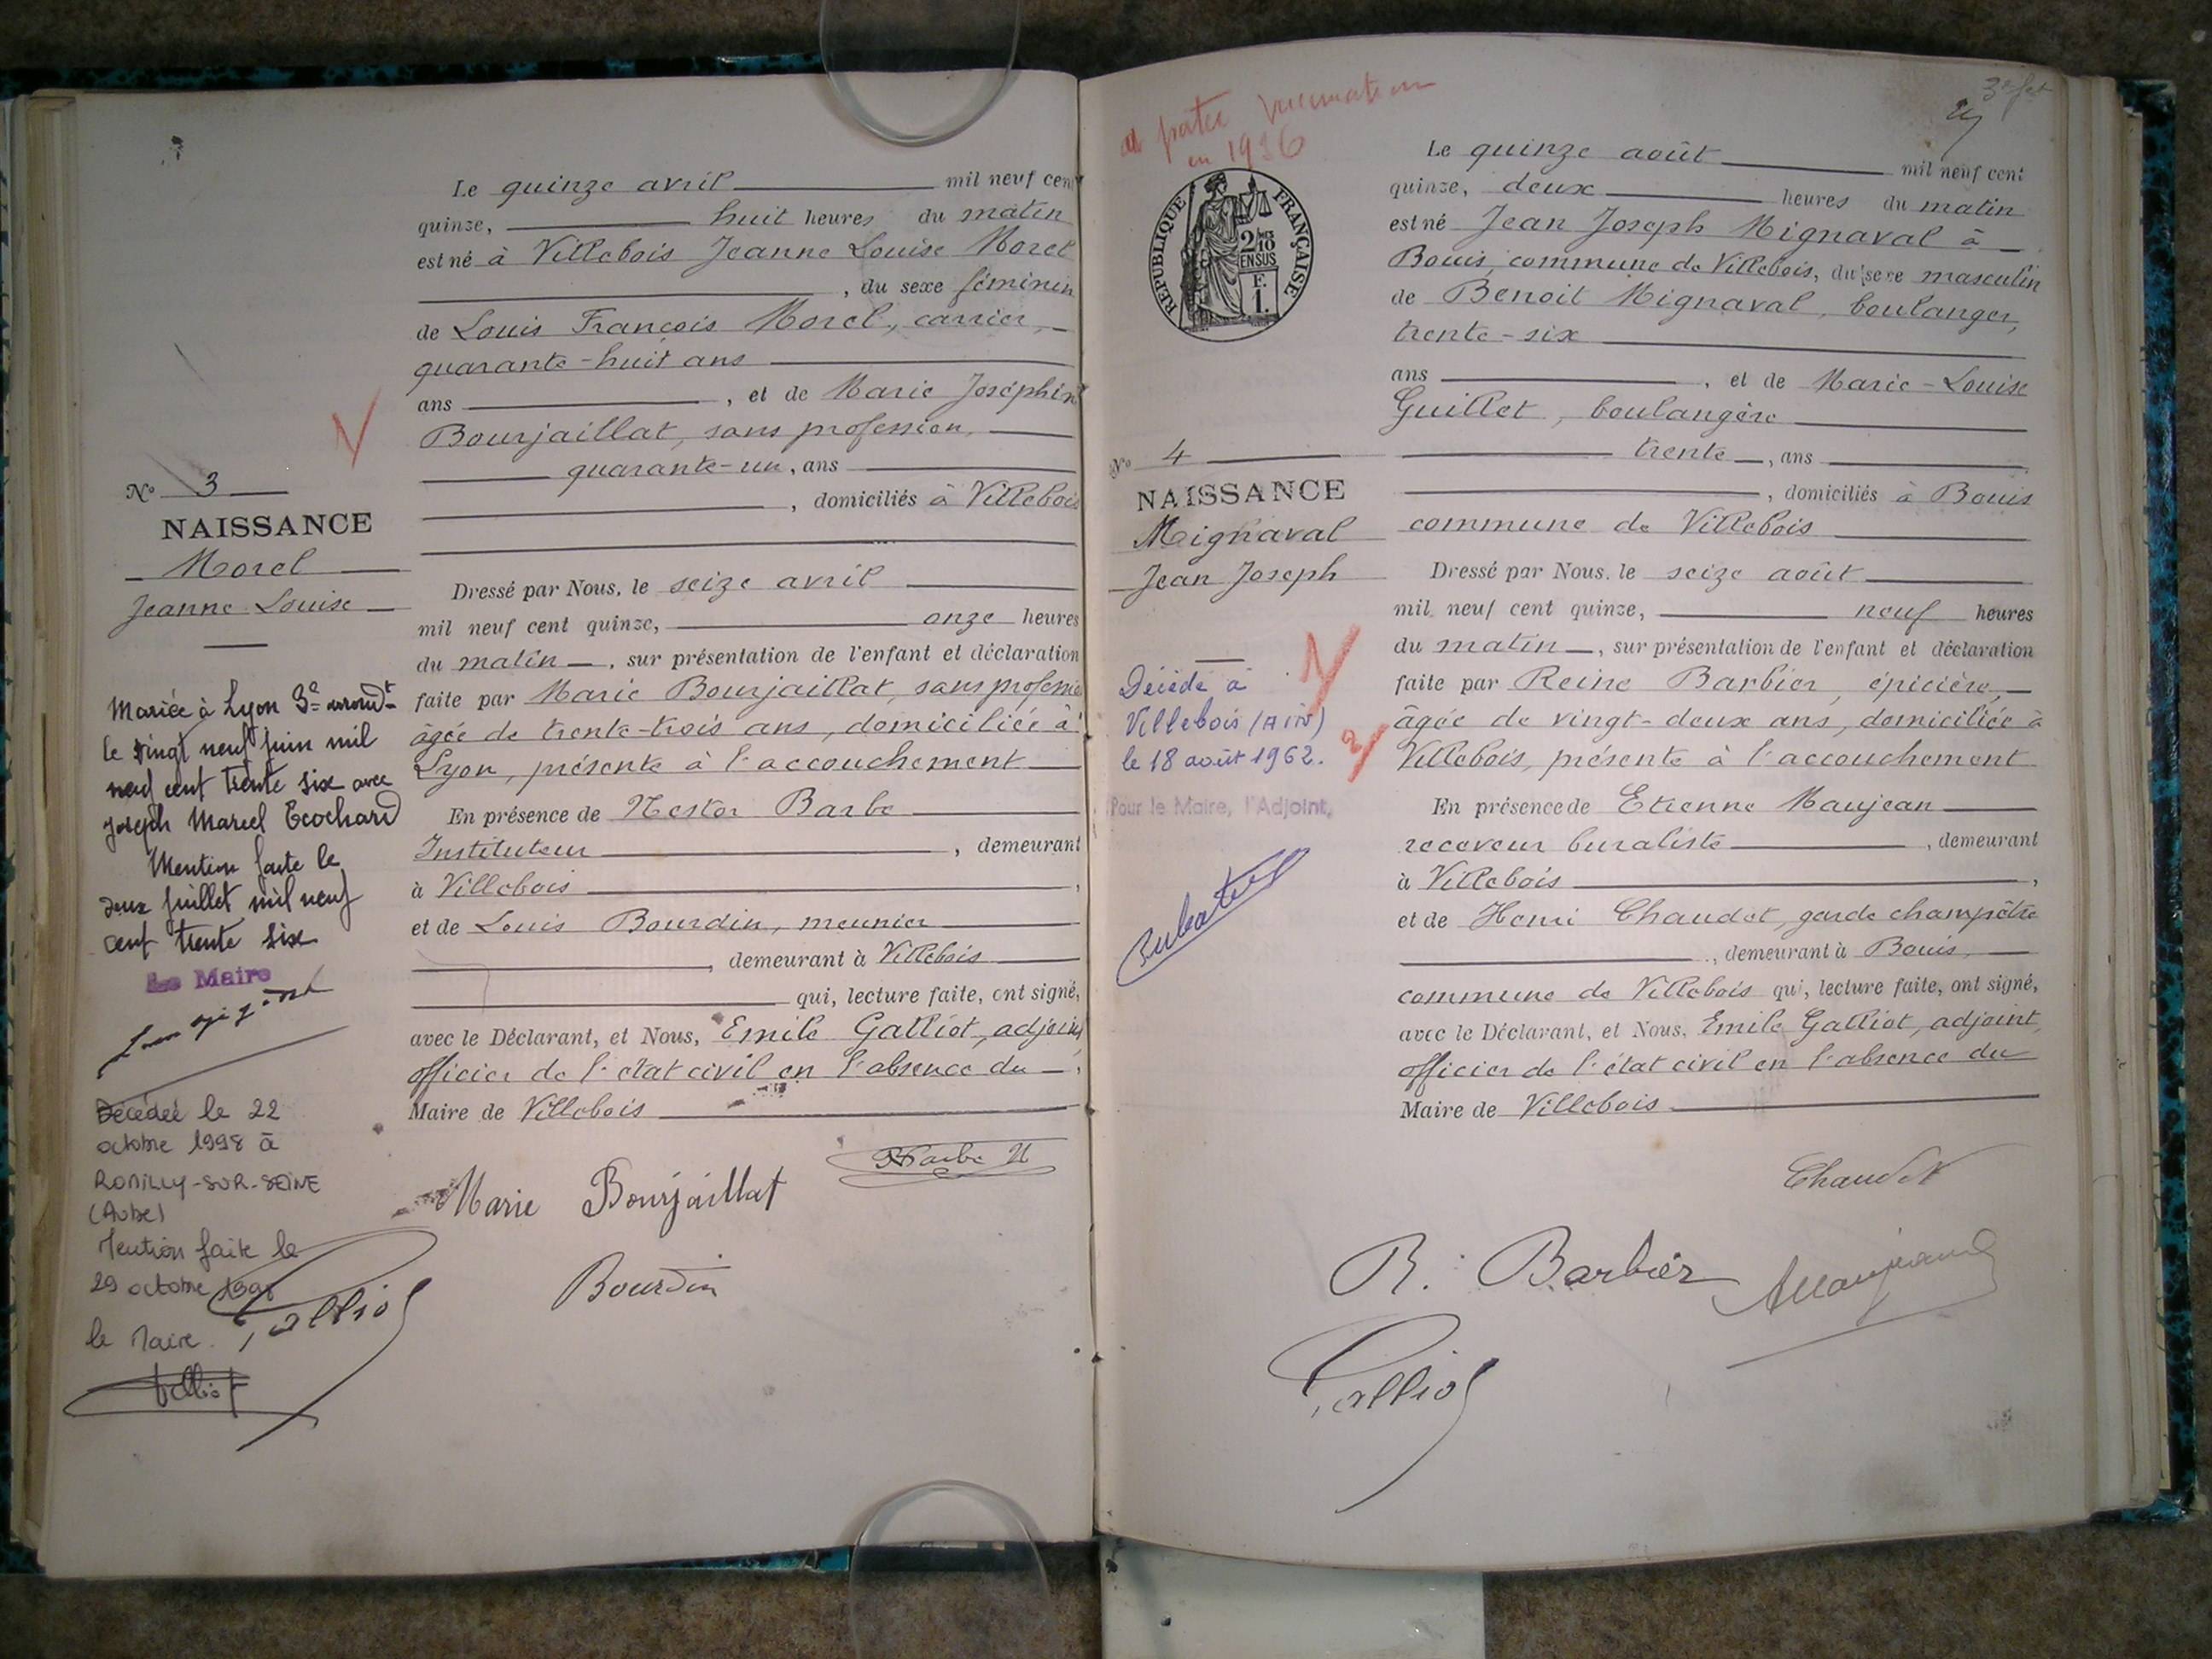 Le quinze avril mil neuf cent
quinze, huit heures du matin
est né à Villebois Jeanne Louise Morel
, du sexe féminin
de Louis François Morel, carrier,
quarante-huit ans
ans , et de Marie Joséphine
Bourjaillat, sans profession,
quarante-un, ans
, domiciliés à Villebois
N° 3
NAISSANCE
Morel
Jeanne Louise
Dressé par Nous, le seize avril
mil neuf cent quinze, onze heures
du matin, sur présentation de l'enfant et déclaration
faite par Marie Bourjaillat, sans profession
âgée de trente-trois ans, domiciliée à
Lyon, présente à l'accouchement
En présence de Nestor Barbe
Instituteur , demeurant
à Villebois ,
et de Louis Bourdin, meunier
, demeurant à Villebois
qui, lecture faite, ont signé,
avec le Déclarant, et Nous, Emile Galliot, adjoint
officier de l'état civil en l'absence du
Maire de Villebois
Mariée à Lyon 3e arrondt
le vingt neuf juin mil
neuf cent trente six avec
Joseph Marcel
Mention faite le
deux juillet mil neuf
cent trente six
Le Maire
Décédée le 22
octobre 1998 à
ROMILLY-SUR-SEINE
(Aube)
Mention faite le
29 octobre 1998
le Maire.
Barbe N
Marie Bourjaillat
Bourdin
Galliot
en 1936
RÉPUBLIQUE FRANÇAISE
2/10
EN SUS
F.
1.
Le quinze août mil neuf cent
quinze, deux heures du matin
est né Jean Joseph Mignaval à
Bouis, commune de Villebois, du sexe masculin
de Benoit Mignaval, boulanger,
trente-six
ans , et de Marie-Louise
Guillet, boulangère
trente, ans
, domiciliés à Bouis
commune de Villebois
N° 4
NAISSANCE
Mignaval
Jean Joseph
Décédé à
Villebois (Ain)
le 18 août 1962.
Pour le Maire, l'Adjoint,
Dressé par Nous, le seize août
mil neuf cent quinze, neuf heures
du matin, sur présentation de l'enfant et déclaration
faite par Reine Barbier, épicière,
âgée de vingt-deux ans, domiciliée à
Villebois, présente à l'accouchement
En présence de Etienne Maujean
receveur buraliste , demeurant
à Villebois ,
et de Henri Chaudet, garde champêtre
, demeurant à Bouis,
commune de Villebois qui, lecture faite, ont signé,
avec le Déclarant, et Nous, Emile Galliot, adjoint,
officier de l'état civil en l'absence du
Maire de Villebois
Chaudet
R. Barbier
Maujean
Galliot